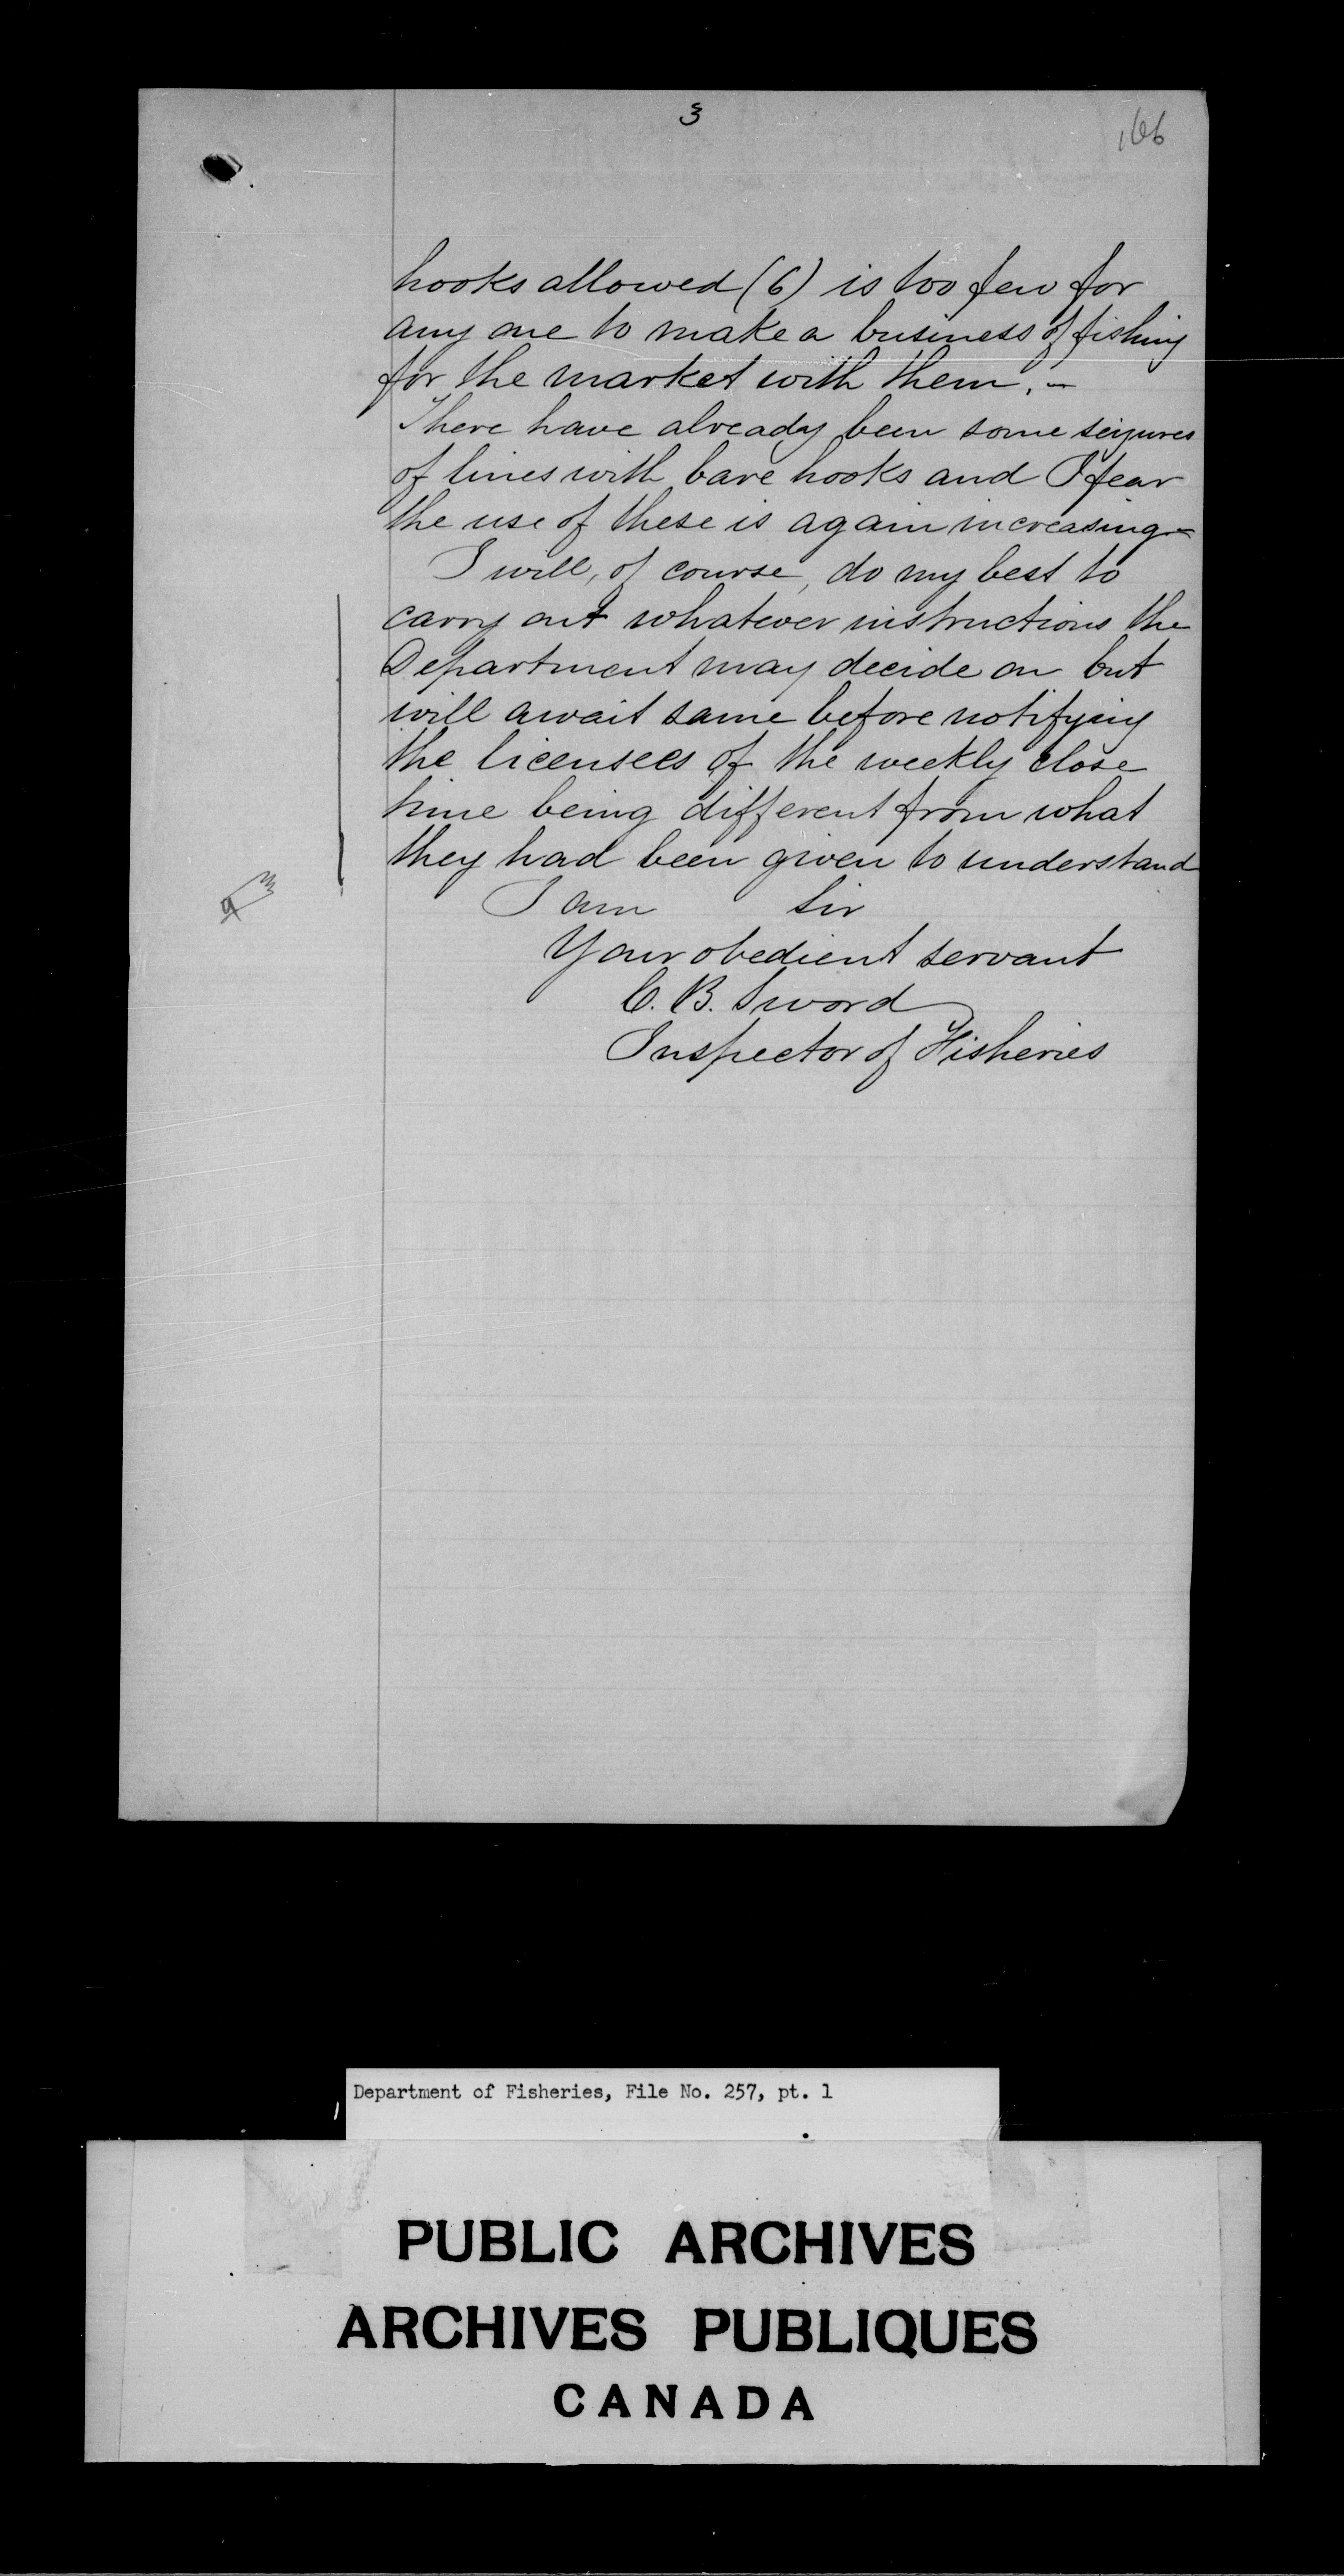 3
166
hooks allowed (6) is too few for
any one to make a business of fishing
for the market with them. –
There have already been some seizures
of lines with bare hooks and I fear
the use of these is again increasing –
I will, of course, do my best to
carry out whatever instructions the
Department may decide on but
will await same before notifying
the licensees of the weekly close
time being different from what
they had been given to understand
I am Sir
Your obedient servant
C. B. Sword
Inspector of Fisheries
Department of Fisheries, File No. 257, pt. 1
PUBLIC ARCHIVES
ARCHIVES PUBLIQUES
CANADA